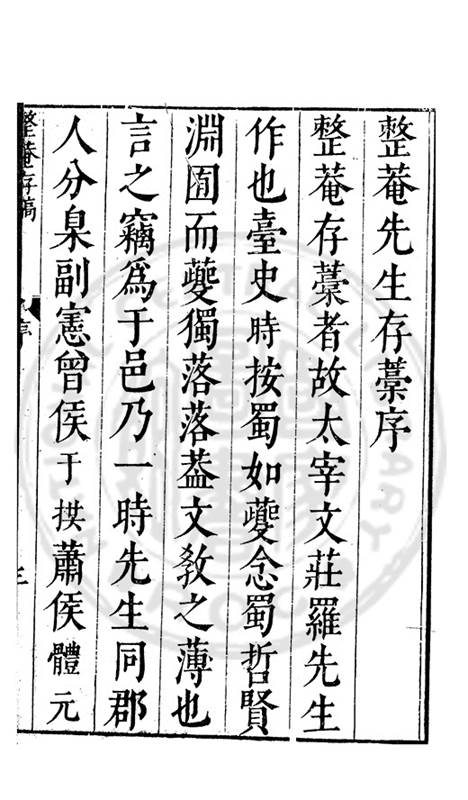 整菴先生存藁序
整菴存藁者故太宰文莊羅先生
作也臺史時按蜀如夔念蜀哲賢
淵囿而夔獨落落葢文敎之薄也
言之竊爲于邑乃一時先生同郡
人分臬副憲曾侯于拱蕭侯體元
整菴存稿